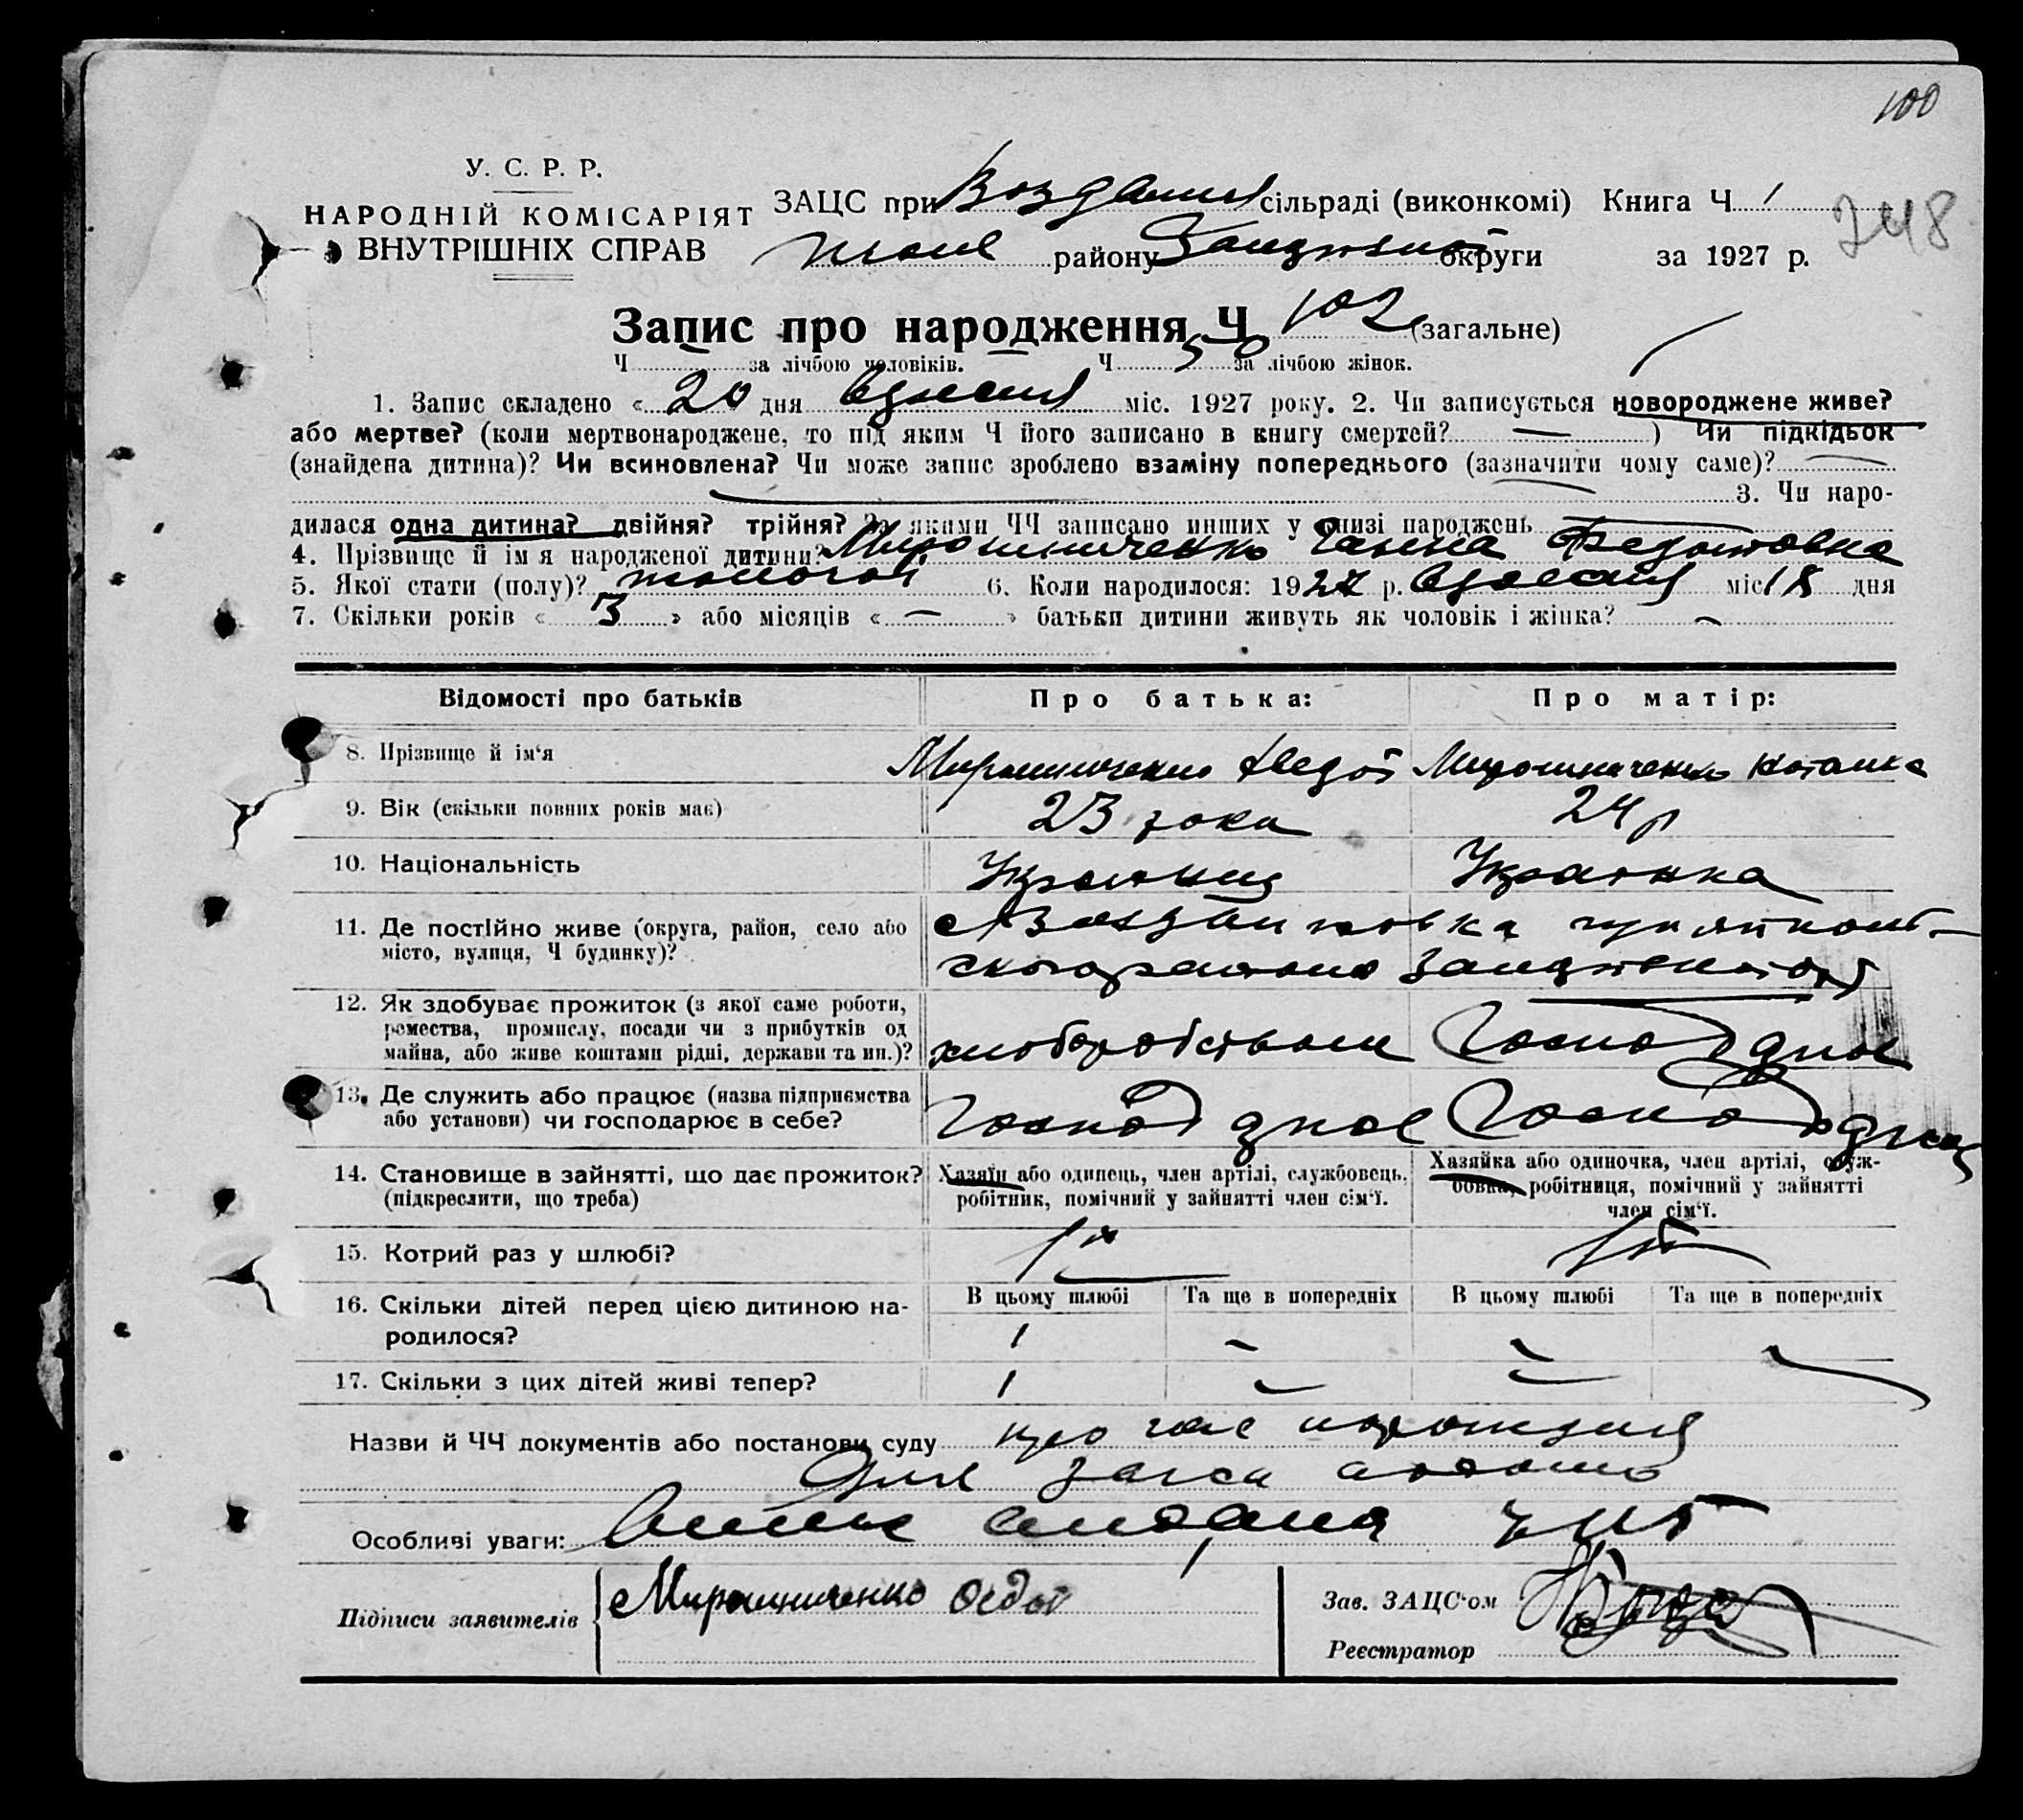 100
У. С. Р. Р.
НАРОДНІЙ КОМІСАРІЯТ
ВНУТРІШНІХ СПРАВ
ЗАЦС при сільраді (виконкомі) Книга Ч 1
району округи за 1927 р.
248
Запис про народження Ч 102 (загальне)
Ч — за лічбою чоловіків. Ч 50 за лічбою жінок.
1. Запис складено « 20 дня вересня міс. 1927 року. 2. Чи записується новороджене живе?
або мертве? (коли мертвонароджене, то під яким Ч його записано в книгу смертей? — ) Чи підкідьок
(знайдена дитина)? Чи всиновлена? Чи може запис зроблено взаміну попереднього (зазначити чому саме)? —
3. Чи наро-
дилася одна дитина? двійня? трійня? За якими ЧЧ записано инших у книзі народжень
4. Прізвище й ім'я народженої дитини? Мирошниченко Ганна Федотовна
5. Якої стати (полу)? жіночої 6. Коли народилося: 1927 р. вересня міс 18 дня
7. Скільки років « 3 » або місяців « — » батьки дитини живуть як чоловік і жінка? —
Відомості про батьків Про батька: Про матір:
8. Прізвище й ім'я Мирошниченко Федот Мирошниченко
9. Вік (скільки повних років має) 23 роки 24 р
10. Національність Українец Українка
11. Де постійно живе (округа, район, село або
місто, вулиця, Ч будинку)?
12. Як здобуває прожиток (з якої саме роботи,
ремества, промислу, посади чи з прибутків од
майна, або живе коштами рідні, держави та ин.)? хліборобством
13. Де служить або працює (назва підприємства
або установи) чи господарює в себе?
14. Становище в зайнятті, що дає прожиток?
(підкреслити, що треба)
Хазяїн або одинець, член артілі, службовець,
робітник, помічний у зайнятті член сім'ї.
Хазяйка або одиночка, член артілі, служ-
бовка, робітниця, помічний у зайнятті
член сім'ї.
15. Котрий раз у шлюбі? 1й
16. Скільки дітей перед цією дитиною на-
родилося?
В цьому шлюбі Та ще в попередніх В цьому шлюбі Та ще в попередніх
1 —
17. Скільки з цих дітей живі тепер? 1 —
Назви й ЧЧ документів або постанови суду про
Особливі уваги:
Підписи заявителів Мирошниченко Федот
Зав. ЗАЦС'ом
Реєстратор